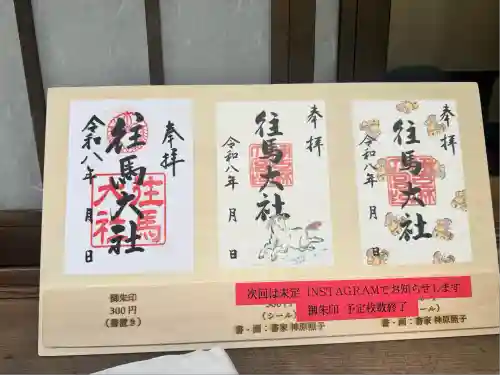 奉拝
往馬大社
令和八年 月 日
往馬
大社
奉拝
往馬大社
令和八年 月 日
奉拝
往馬大社
令和八年 月 日
御朱印
300円
(書置き)
次回は未定 INSTAGRAMでお知らせします
御朱印 予定枚数終了
(シール)
書・画:書家 神原照子
(シール)
書・画:書家 神原照子